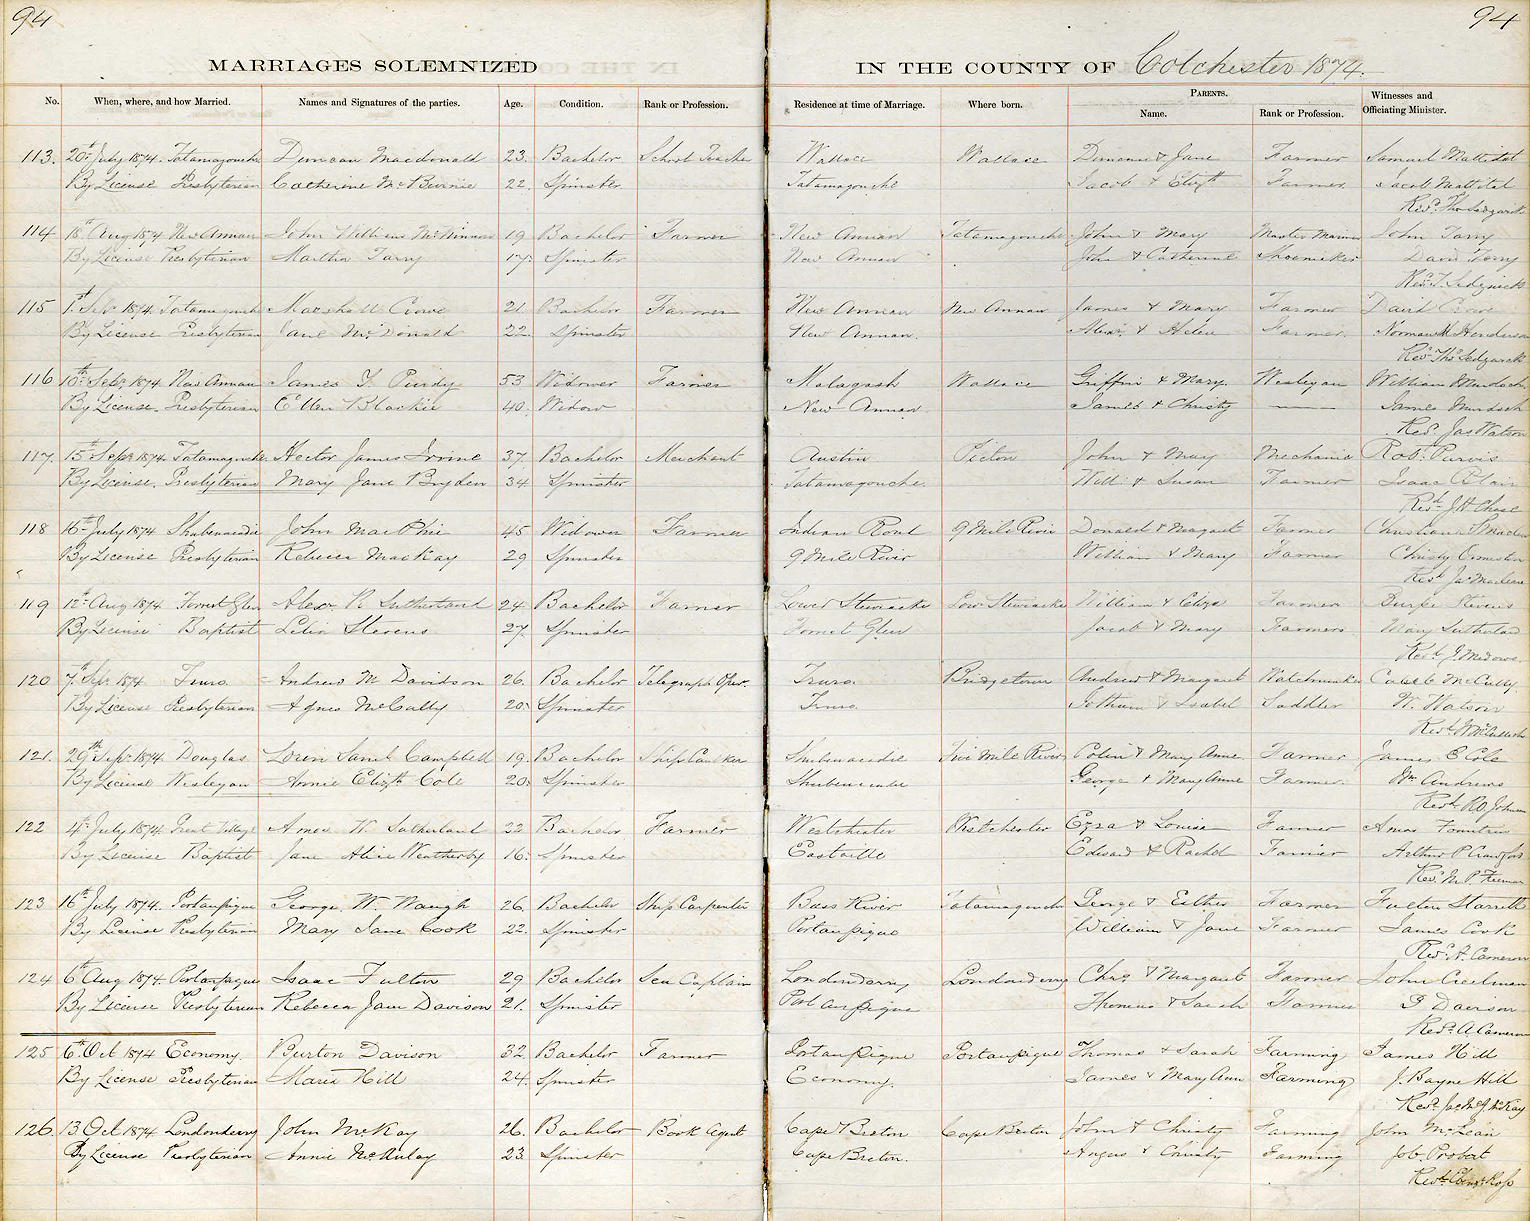 94 94
MARRIAGES SOLEMNIZED IN THE COUNTY OF Colchester 1874.
No. When, where, and how Married. Names and Signatures of the parties. Age. Condition. Rank or Profession. Residence at time of Marriage. Where born. PARENTS. Name. Rank or Profession. Witnesses and Officiating Minister.
113. 20th July 1874. Tatamagouche Duncan Macdonald 23. Bachelor School Teacher Wallace Wallace Duncan & Jane Farmer Samuel
By License Presbyterian Catherine 22. Spinster Tatamagouche Jacob & Elizth Farmer. Jacob
Revd. Thos Sedgwick
114 18th Aug 1874 New Annan John William 19 Bachelor Farmer New Annan Tatamagouche John & Mary Master Mariner John Tarry
By License Presbyterian Martha Tarry 17. Spinster New Annan John & Catherine Shoemaker David
Revd. T. Sedgwick
115 1st Sep 1874. Tatamagouche Marshall Crowe 21. Bachelor Farmer New Annan New Annan James & Mary Farmer David Crowe
By License Presbyterian Jane McDonald 22 Spinster New Annan. Alexr & Helen Farmer. Norman Henderson
Revd. Thos Sedgwick
116 10th Sepr. 1874 New Annan James F Purdy 53. Widower Farmer Malagash Wallace Griffin & Mary. Wesleyan William Murdoch
By License. Presbyterian Ellen Blackie 40. Widow New Annan James & Christy James Murdoch
Revd. Jas Watson
117. 15th Sepr 1874. Tatamagouche. Hector James Irvine 37. Bachelor Merchant Austin Picton John & Mary Mechanic Robt Purvis
By License. Presbyterian Mary Jane Bryden 34 Spinster Tatamagouche. Will & Susan Farmer Isaac Blair
Revd. J. H. Chase
118 16th July 1874 Shubenacadie John MacPhie 45 Widower Farmer Indian Road 9 Mile River Donald & Margaret Farmer
By License Presbyterian Rebecca MacKay 29 Spinster 9 Mile River William & Mary Farmer Christy
Revd. Jas Maclean
119 12th Aug 1874 Forrest Glen Alexr R Sutherland 24. Bachelor Farmer Lower Stewiacke Low Stewiacke William & Eliza Farmer Burpee Stevens
By License Baptist Stevens 27. Spinster Forrest Glen Jacob & Mary Farmers Mary Sutherland
Revd. J. Meadows.
120 7th Sepr 1874 Truro. Andrew M Davidson 26. Bachelor Telegraph Oper. Truro. Bridgetown Andrew & Margaret Watchmaker Caleb McCully.
By License Presbyterian Agnes McCully 20. Spinster Truro & Isabel Saddler W. Watson
Revd. Wm McCulloch
121. 29th Sepr 1874. Douglas Loren Saml Campbell 19. Bachelor Ship Caulker Shubenacadie Five Mile River Colin & Mary Anne Farmer James E Cole
By License Wesleyan Annie Elizth Cole 20. Spinster Shubenacadie George & Mary Anne Farmer. Wm Andrews
Revd. R. O. Johnson
122 4th July 1874 Great Village Amos W. Sutherland 22 Bachelor Farmer Westchester Westchester Ezra & Louisa Farmer Amos Fountain
By License Baptist Jane Alice Weatherby 16. Spinster Eastville Edward & Rachel Farmer Arthur P Crawford
Revd. M. P. Freeman
123 16th July 1874. Portaupique George. W. Waugh 26. Bachelor Ship Carpenter Bass River Tatamagouche George & Esther Farmer Fulton Starrett
By License Presbyterian Mary Jane Cook 22. Spinster Portaupique William & Jane Farmer James Cook
Revd. A. Cameron
124 6th Aug 1874. Portaupique Isaac Fulton 29 Bachelor Sea Captain Londonderry Londonderry Chrs. & Margaret Farmer John Creelman
By License Presbyterian Rebecca Jane Davison 21. Spinster Portaupique Thomas & Sarah Farmer Davison
Revd. A Cameron
125 6th Oct 1874 Economy. Burton Davison 32. Bachelor Farmer Portaupique Portaupique Thomas & Sarah Farming James Hill
By License Presbyterian Maria Hill 24. Spinster Economy. James & Mary Ann Farming J. Bayne Hill
Revd. McKay
126. 13 Oct 1874 Londonderry John McKay 26. Bachelor Book Agent Cape Breton Cape Breton John & Christy Farming John McLean
By License Presbyterian Annie McAulay 23. Spinster Cape Breton. Angus & Christy Farming Job. Probert
Revd. Ebenr Ross